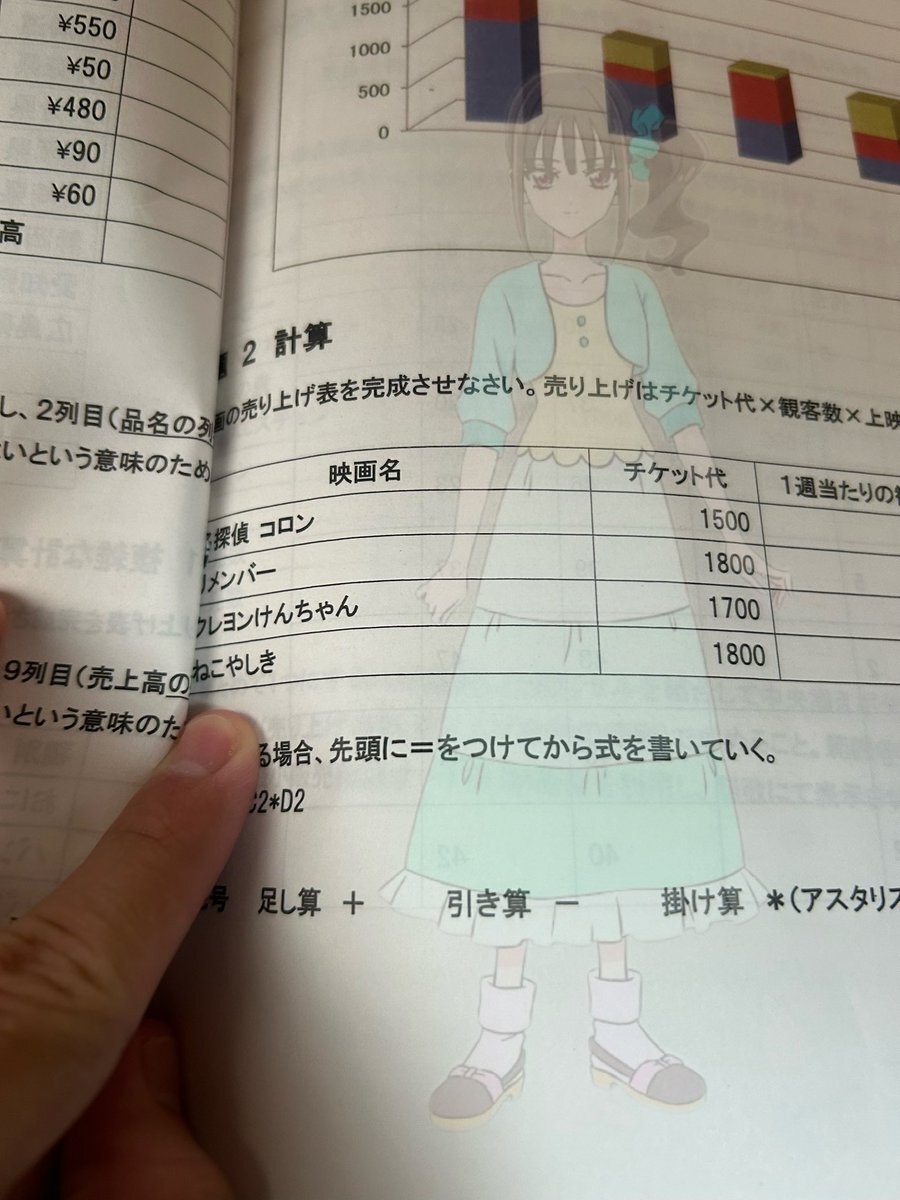 ¥550
¥50
¥480
¥90
¥60
高
し、2列目(品名の列
いという意味のため
9列目(売上高の
いという意味のた
1500
1000
500
0
2 計算
画の売り上げ表を完成させなさい。売り上げはチケット代×観客数×上映
映画名 チケット代 1週当たりの
探偵 コロン 1500
リメンバー 1800
クレヨンけんちゃん 1700
ねこやしき 1800
る場合、先頭に=をつけてから式を書いていく。
C2*D2
号 足し算 + 引き算 - 掛け算 *(アスタリス